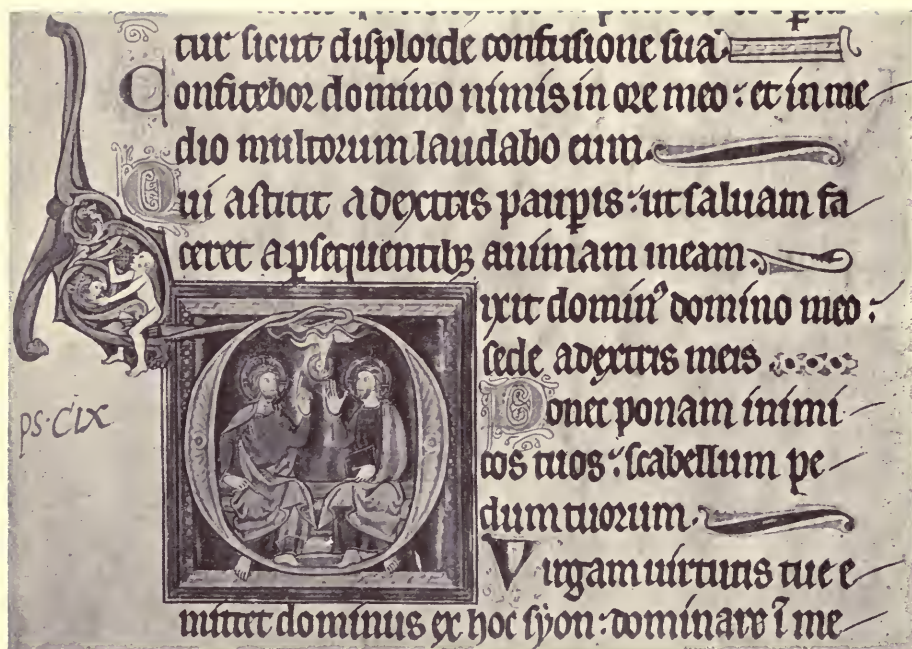 tur sicut disploide confusione sua
Confitebor domino nimis in ore meo : et in me
dio multorum laudabo eum.
Qui astitit a dextris pauꝑis : ut saluam fa
ceret a ꝑsequentibꝫ animam meam.
Dixit dominꝰ domino meo :
sede a dextris meis
Donec ponam inimi
cos tuos : scabellum pe
dum tuorum.
Virgam uirtutis tue e
mittet dominus ex hoc syon : dominare ī me
ps. CIX